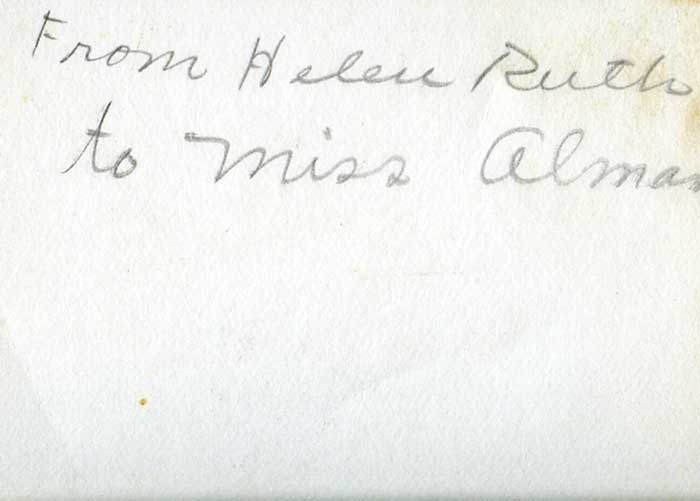 From Helen Ruth
to Miss Alman